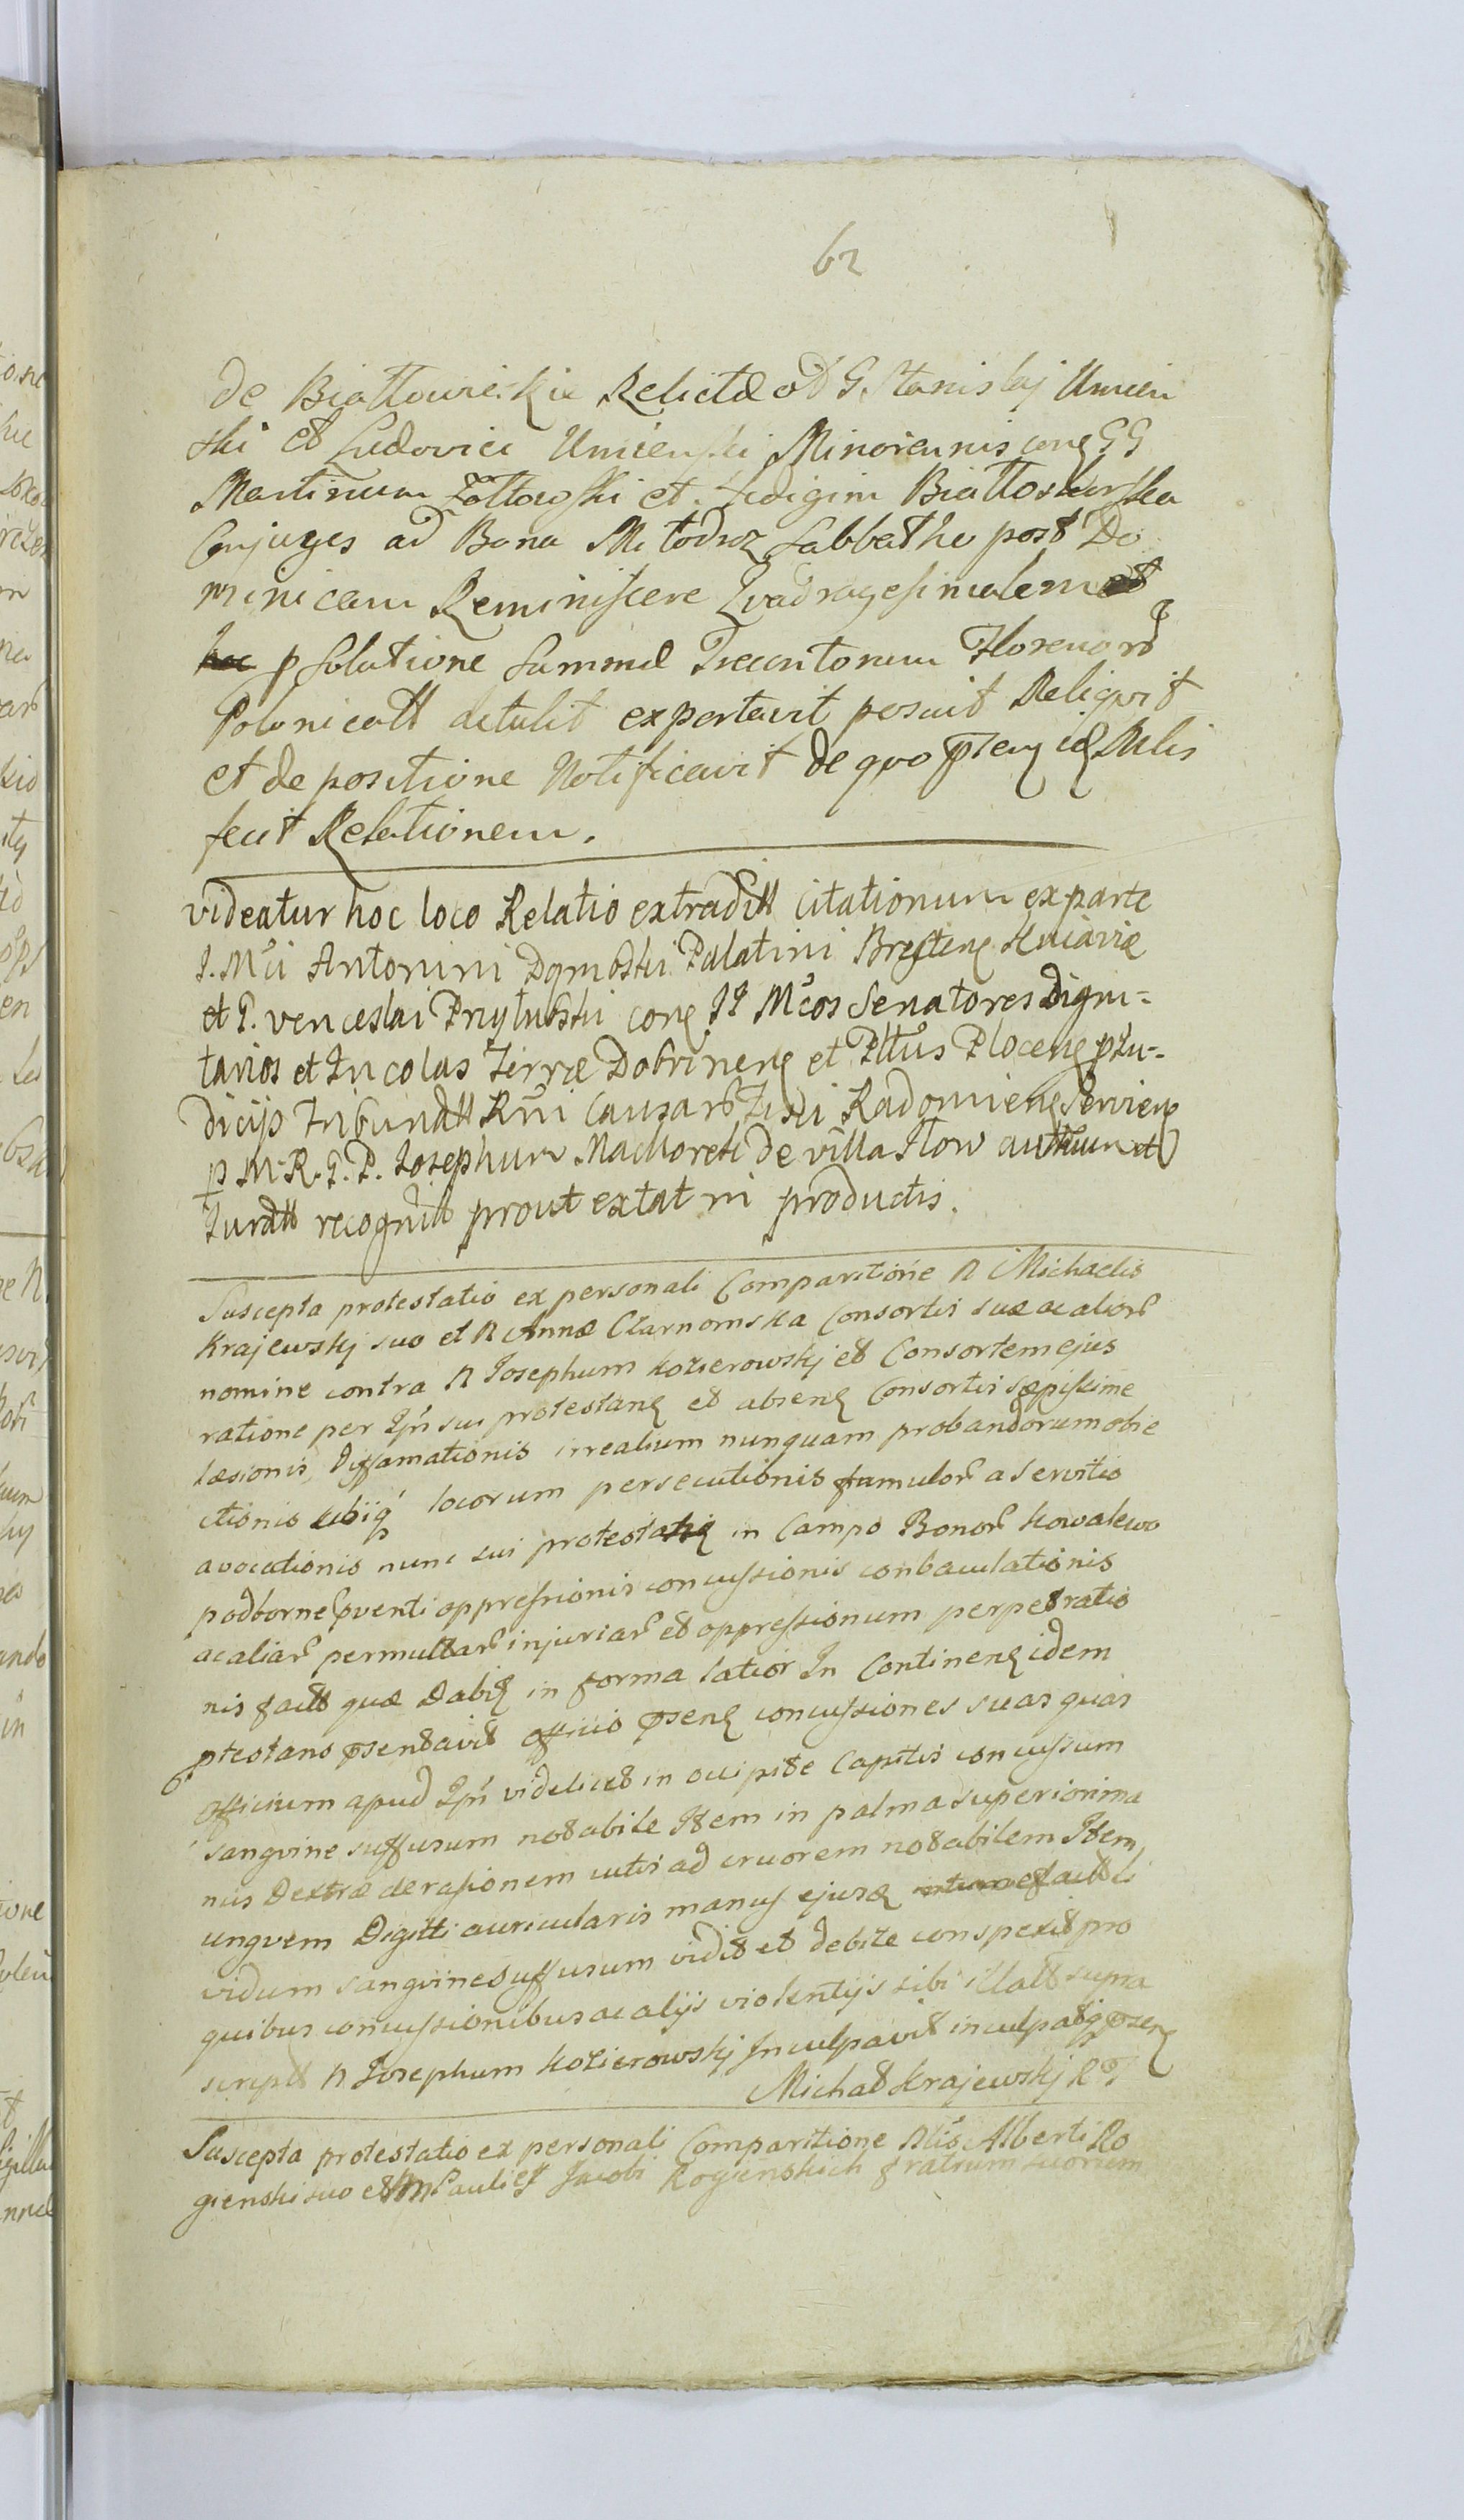 62
de Białłowieskie Relictæ od G. Stanislaj Umien
ski et Ludovici Umienski Minorennis conq GG
Martinum Zołtowski et Hedigim Białłoskorska
Conjuges ad Bona Młodrz Sabbatho post Do
minicam Reminiscere Quadragesimalem et
hac p solutione Summæ Trecentorum Florenor
Polonicall detulit exportavit posuit Reliquit
et de positione Notificavit de quo pteng idq Rlis
fecit Relationem.
videatur hoc loco Relatio extraditt Citationum ex parte
J. Mci Antonini Dąmbski Palatini Brestenq Kuiaviæ
et G. venceslai Przyłubski conq JJ Mcos Senatores digni-
tarios et Incolas Terræ Dobrinenq et Pttus Plocenq p Ju-
dicijs Tribunatt Rni Causar Fisci Radomienq Servienq
p M. R. G. P. Josephum Machoreti de villa Iłow authum et
Juratt recognitt prout extat in productis.
Suscepta protestatio ex personali Comparitione N Michaelis
Krajewskj suo et N Annæ Czarnomska Consortis suæ ac alior
nomine contra N Josephum Kozierowskj et Consortem ejus
ratione per Ipm sui protestanq et absenq Consortis sæpissime
læsionis Diffamationis irrealium nunquam probandorum obie
ctionis ubiiq locorum persecutionis famulor a servitio
avocationis nunc sui protestatnq in Campo Bonor Kowalewo
podborne pventi oppressionis concussionis conbaculationis
ac aliar permultar injuriar et oppressionum perpetratio
nis factt quæ Dabiq in forma latior In Continenq idem
ptestans psentavit officio psenq concussiones suas quas
officium apud Ipm videlicet in occipite Capitis concussum
sangvine suffusum notabile Item in palma superiori ma
nus Dextræ derasionem cutis ad cruorem notabilem Item
ungvem Digitti auricularis manus ejusq intumefactt li
vidum sangvine Suffusum vidit et debite conspexit pro
quibus concussionibus ac alijs violentijs sibi illatt supra
scriptt N Josephum Kozierowskj Inculpavit inculpatq psenq
Michał Krajewskj RP
Suscepta protestatio ex personali Comparitione Nlis Alberti Ro
gienski suo et NN Pauli et Jacobi Rogienskich fratrum suorum